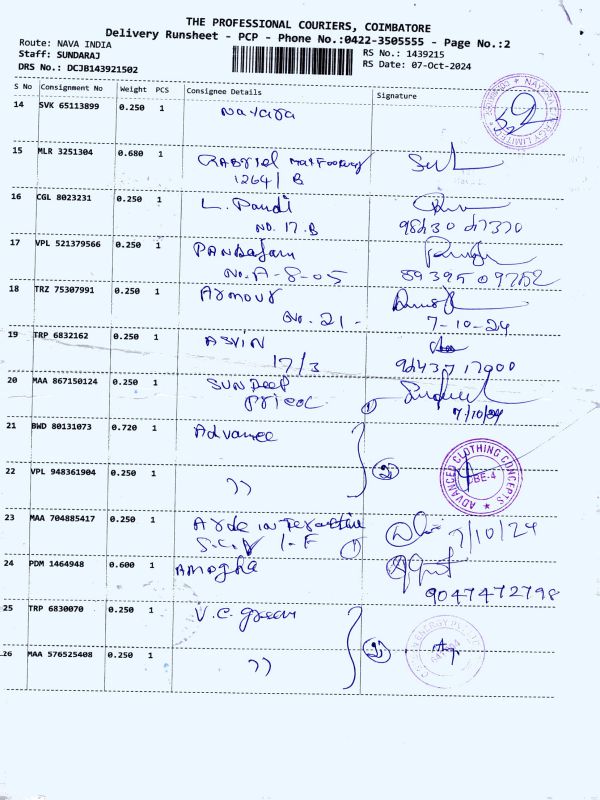 THE PROFESSIONAL COURIERS, COIMBATORE
Delivery Runsheet - PCP - Phone No.:0422-3505555 - Page No.:2
Route: NAVA INDIA
RS No.: 1439215
Staff: SUNDARAJ
RS Date: 07-Oct-2024
DRS No.: DCJB143921502
S No Consignment No Weight PCS Consignee Details Signature
14 SVK 65113899 0.250 1 Nayara
15 MLR 3251304 0.680 1
1264/ B
16 CGL 8023231 0.250 1 L. Pandi
NO. 17.B
17 VPL 521379566 0.250 1
No. A-8-05
18 TRZ 75307991 0.250 1 Armour
No. 21 - 7-10-24
19 TRP 6832162 0.250 1 ASVIN
17/3
20 MAA 867150124 0.250 1 SUNDEEP
Pricol 1 7/10/24
21 BWD 80131073 0.720 1 Advance
2 ADVANCED CLOTHING CONCEPTS CBE-4
22 VPL 948361904 0.250 1 ,,
23 MAA 704885417 0.250 1 7/10/24
1
24 PDM 1464948 0.600 1 Amogha
9047472798
25 TRP 6830070 0.250 1 V.C. green
2
26 MAA 576525408 0.250 1 ,,